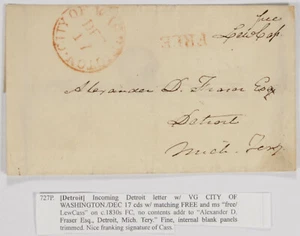 CITY OF WASHINGTON
DEC
17
FREE
free
LewCass
Alexander D. Fraser Esq
Detroit
Mich. Tery
727P. [Detroit] Incoming Detroit letter w/ VG CITY OF
WASHINGTON/DEC 17 cds w/ matching FREE and ms "free/
LewCass" on c.1830s FC, no contents addr to "Alexander D.
Fraser Esq., Detroit, Mich. Tery." Fine, internal blank panels
trimmed. Nice franking signature of Cass.